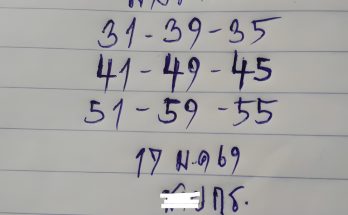 31-39-35
41-49-45
51-59-55
17 ม.ค 69